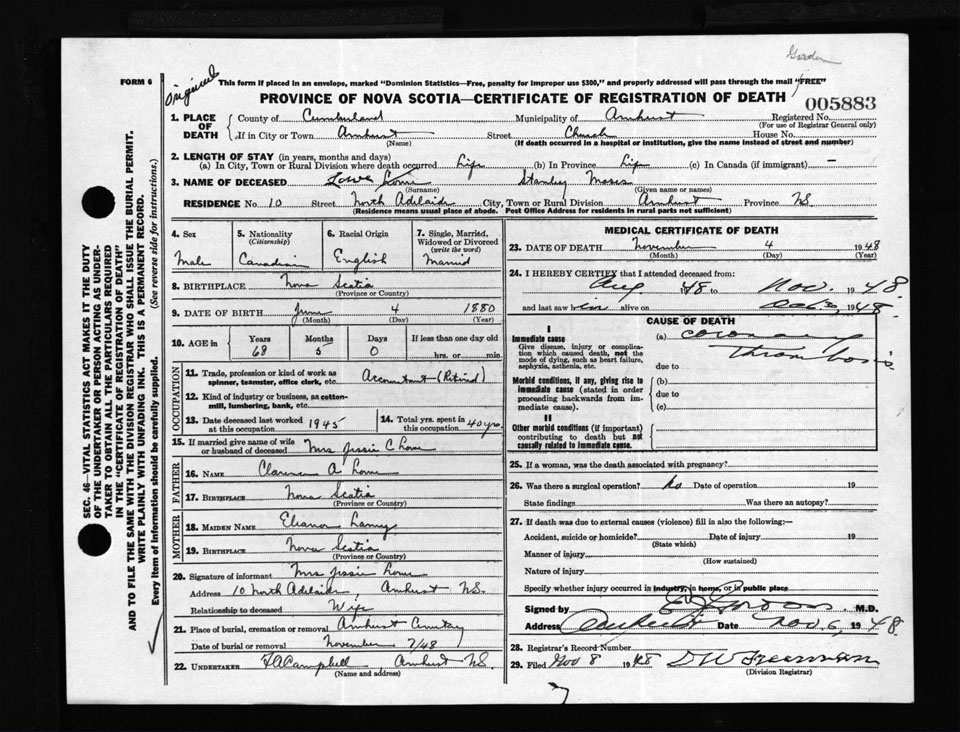 Gordon
FORM 6
Original
This form if placed in an envelope, marked "Dominion Statistics—Free, penalty for improper use $300," and properly addressed will pass through the mail "FREE"
PROVINCE OF NOVA SCOTIA—CERTIFICATE OF REGISTRATION OF DEATH
005883
1. PLACE OF DEATH
County of Cumberland Municipality of Amherst Registered No.
(For use of Registrar General only)
If in City or Town Amherst Street Church House No.
(Name) (If death occurred in a hospital or institution, give the name instead of street and number)
2. LENGTH OF STAY (in years, months and days)
(a) In City, Town or Rural Division where death occurred Life (b) In Province Life (c) In Canada (if immigrant) —
3. NAME OF DECEASED Lowe Stanley Moses
(Surname) (Given name or names)
RESIDENCE No. 10 Street North Adelaide City, Town or Rural Division Amherst Province NS.
(Residence means usual place of abode. Post Office Address for residents in rural parts not sufficient)
4. Sex
Male
5. Nationality
(Citizenship)
Canadian
6. Racial Origin
English
7. Single, Married, Widowed or Divorced
(write the word)
Married
8. BIRTHPLACE Nova Scotia
(Province or Country)
9. DATE OF BIRTH June 4 1880
(Month) (Day) (Year)
10. AGE in Years Months Days If less than one day old
68 5 0 hrs. or min.
OCCUPATION
11. Trade, profession or kind of work as spinner, teamster, office clerk, etc. Accountant (Retired)
12. Kind of industry or business, as cotton-mill, lumbering, bank, etc.
13. Date deceased last worked at this occupation 1945
14. Total yrs. spent in this occupation 40 yrs.
15. If married give name of wife or husband of deceased Mrs Jessie C Lowe
FATHER
16. NAME Clarence A Lowe
17. BIRTHPLACE Nova Scotia
(Province or Country)
MOTHER
18. MAIDEN NAME Eleanor Lamy
19. BIRTHPLACE Nova Scotia
(Province or Country)
20. Signature of informant Mrs Jessie Lowe
Address 10 North Adelaide, Amherst NS.
Relationship to deceased Wife
21. Place of burial, cremation or removal Amherst Cemetery
Date of burial or removal November 7/48
22. UNDERTAKER F A Campbell, Amherst NS.
(Name and address)
MEDICAL CERTIFICATE OF DEATH
23. DATE OF DEATH November 4 1948
(Month) (Day) (Year)
24. I HEREBY CERTIFY that I attended deceased from:
Aug 1948 to Nov. 1948
and last saw him alive on Oct 1948.
CAUSE OF DEATH
I
Immediate cause
Give disease, injury or complication which caused death, not the mode of dying, such as heart failure, asphyxia, asthenia, etc.
(a) coronary thrombosis
due to
Morbid conditions, if any, giving rise to immediate cause (stated in order proceeding backwards from immediate cause).
(b)
due to
(c)
II
Other morbid conditions (if important) contributing to death but not causally related to immediate cause.
25. If a woman, was the death associated with pregnancy?
26. Was there a surgical operation? No Date of operation 19
State findings Was there an autopsy?
27. If death was due to external causes (violence) fill in also the following:—
Accident, suicide or homicide? Date of injury 19
(State which)
Manner of injury
(How sustained)
Nature of injury
Specify whether injury occurred in industry, in home, or in public place
Signed by Gordon M.D.
Address Amherst Date Nov. 6, 1948.
28. Registrar's Record Number
29. Filed Nov 8 1948 D W Freeman
(Division Registrar)
SEC. 46—VITAL STATISTICS ACT MAKES IT THE DUTY
OF THE UNDERTAKER OR PERSON ACTING AS UNDER-
TAKER TO OBTAIN ALL THE PARTICULARS REQUIRED
IN THE "CERTIFICATE OF REGISTRATION OF DEATH"
AND TO FILE THE SAME WITH THE DIVISION REGISTRAR WHO SHALL ISSUE THE BURIAL PERMIT.
WRITE PLAINLY WITH UNFADING INK. THIS IS A PERMANENT RECORD.
Every item of Information should be carefully supplied. (See reverse side for instructions.)